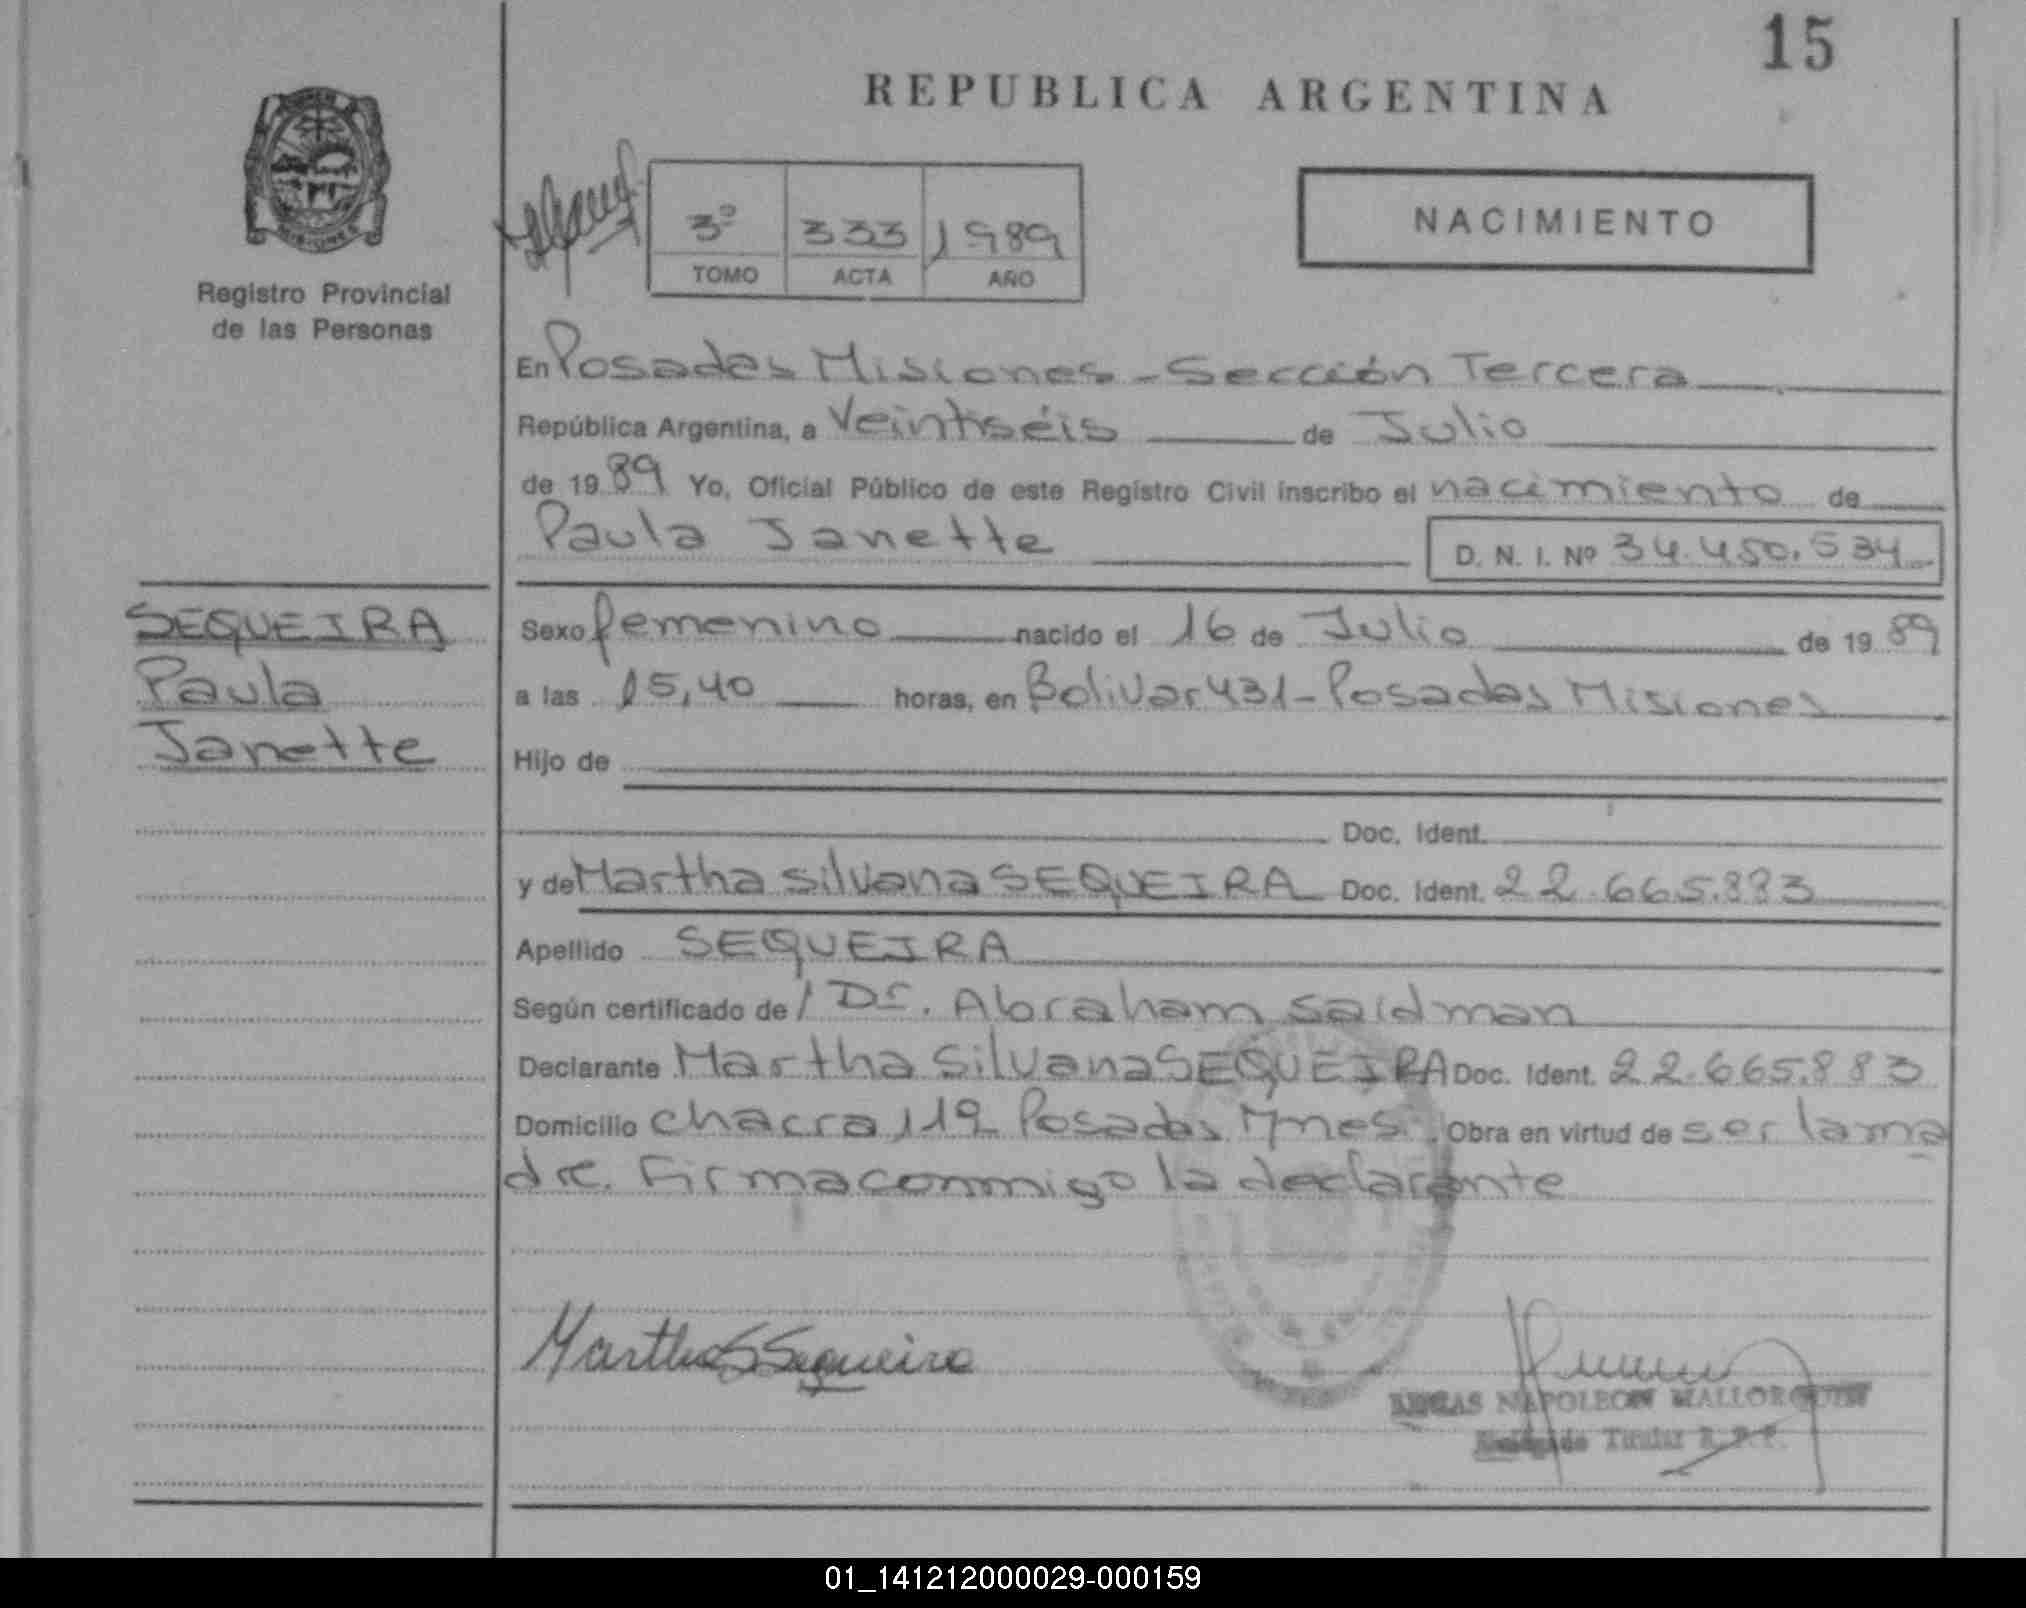 15
REPUBLICA ARGENTINA
MISIONES
Registro Provincial
de las Personas
3º 333 1989
TOMO ACTA AÑO
NACIMIENTO
En Posadas Misiones - Sección Tercera
República Argentina, a Veintiséis de Julio
de 19 89 Yo, Oficial Público de este Registro Civil inscribo el nacimiento de
Paula Janette D. N. I. Nº 34.450.534
SEQUEIRA
Paula
Janette
Sexo femenino nacido el 16 de Julio de 19 89
a las 15,40 horas, en Bolivar 431 - Posadas Misiones
Hijo de
Doc. Ident.
y de Martha Silvana SEQUEIRA Doc. Ident. 22.665.883
Apellido SEQUEIRA
Según certificado de / Dr. Abraham Saidman
Declarante Martha Silvana SEQUEIRA Doc. Ident. 22.665.883
Domicilio Chacra 119 Posadas Mnes. Obra en virtud de ser la ma
dre. Firma conmigo la declarante
Martha S Sequeira
NAPOLEON MALLORQUIN
Titular R. P. P.
01_141212000029-000159